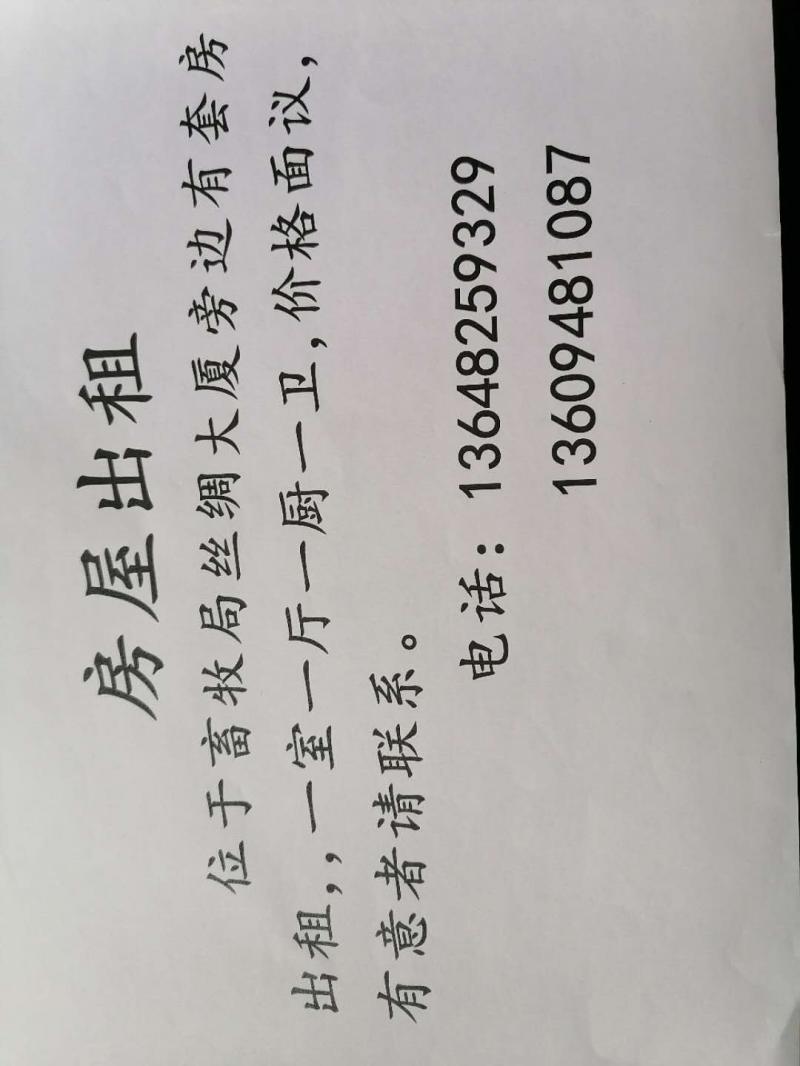 房屋出租
位于畜牧局丝绸大厦旁边有套房
出租,,一室一厅一厨一卫,价格面议,
有意者请联系。
电话：13648259329
13609481087